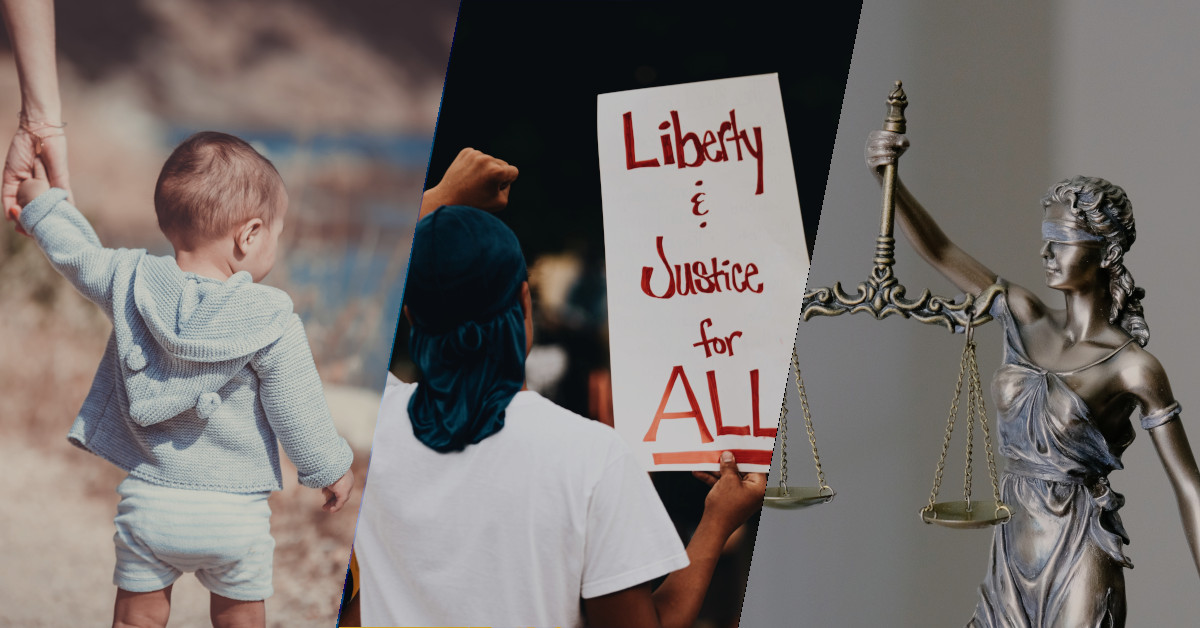 Liberty
&
Justice
for
ALL